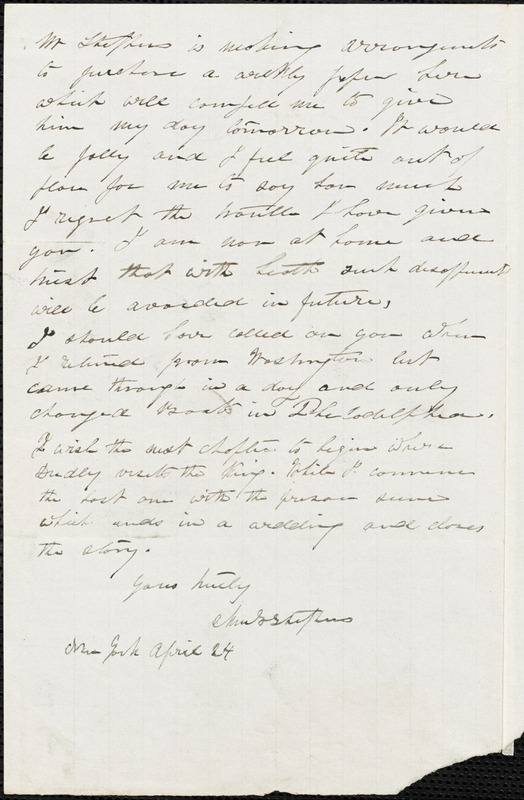 Mr Stephens is making arrangements
to purchase a weekly paper here
which will compell me to give
him my day tomorrow. It would
be folly and I feel quite out of
place for me to say how much
I regret the trouble I have given
you. I am now at home and
trust that with health such disappment
will be avoided in future,
I should have called on you when
I returnd from Washington but
came through in a day and only
changed Boats in Philadelphia.
I wish the next chapter to begin where
Dudley visits the King. While I commence
the last one with the prison scene
which ends in a wedding and closes
the story.
Yours truly
Ann S Stephens
New York April 24